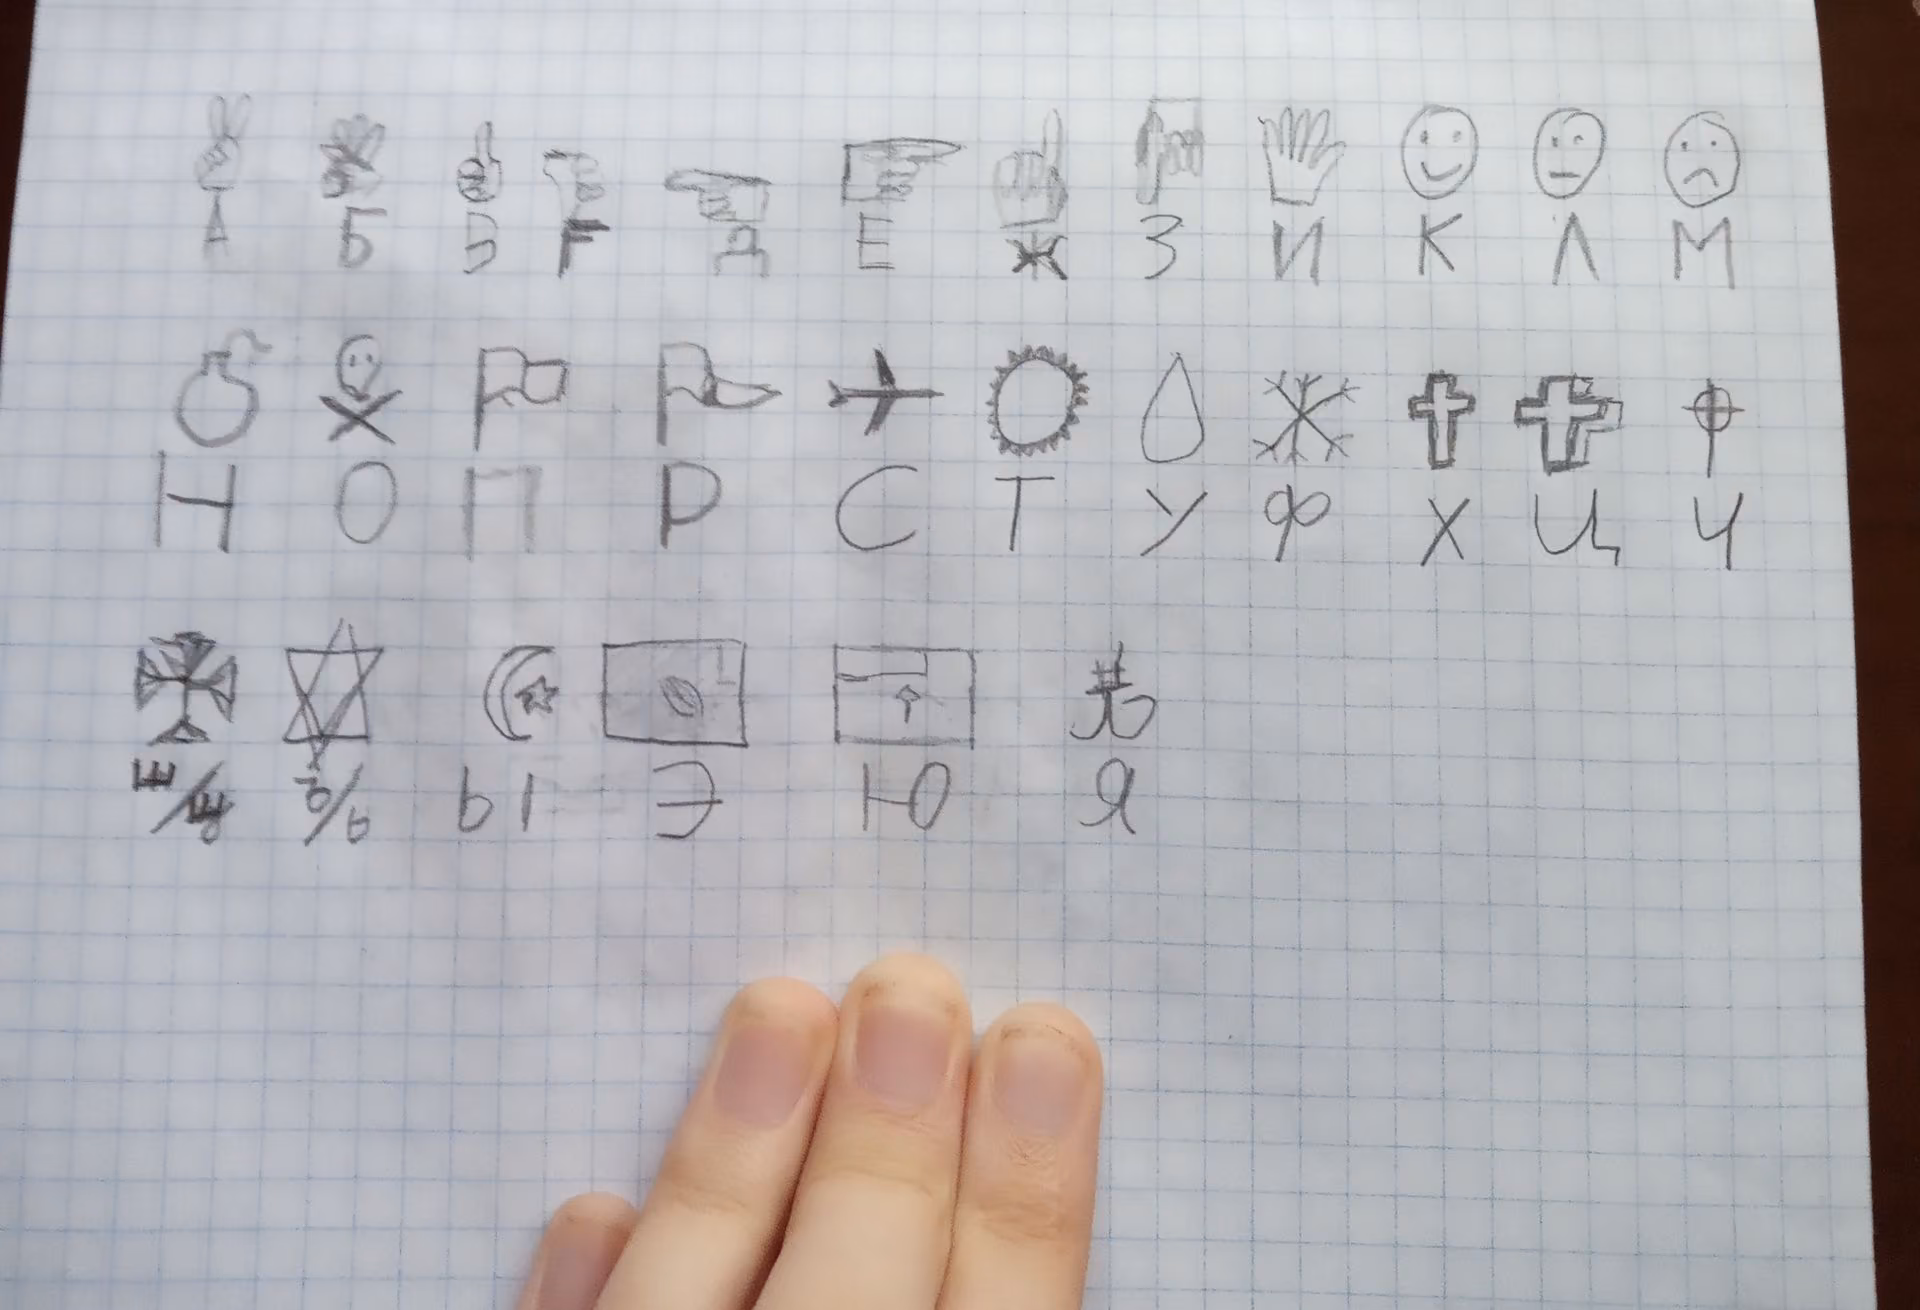 А Б В F Д Е Ж З И К Л М
Н О П Р С Т У Ф Х Ц Ч
Ъ/Ь Ы Э Ю Я